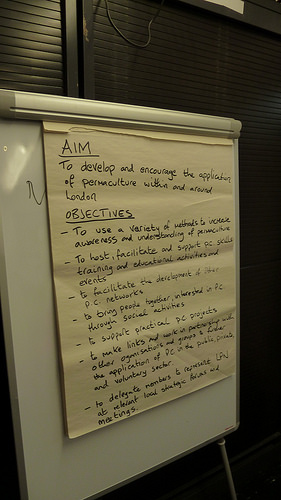 AIM
To develop and encourage the application
of permaculture within and around
London
OBJECTIVES
- To use a variety of methods to increase
awareness and understanding of permaculture
- To host, facilitate and support p.c. skills
training and educational activities and
events
- to facilitate the development of other
p.c. networks
- to bring people together, interested in P.C.
through social activities
- to support practical P.C. projects
- to make links and work in partnership with
other organisations and groups to further
the application of PC in the public, private,
and voluntary sector
- to delegate members to represent LPN
at relevant local strategic forums and
meetings.